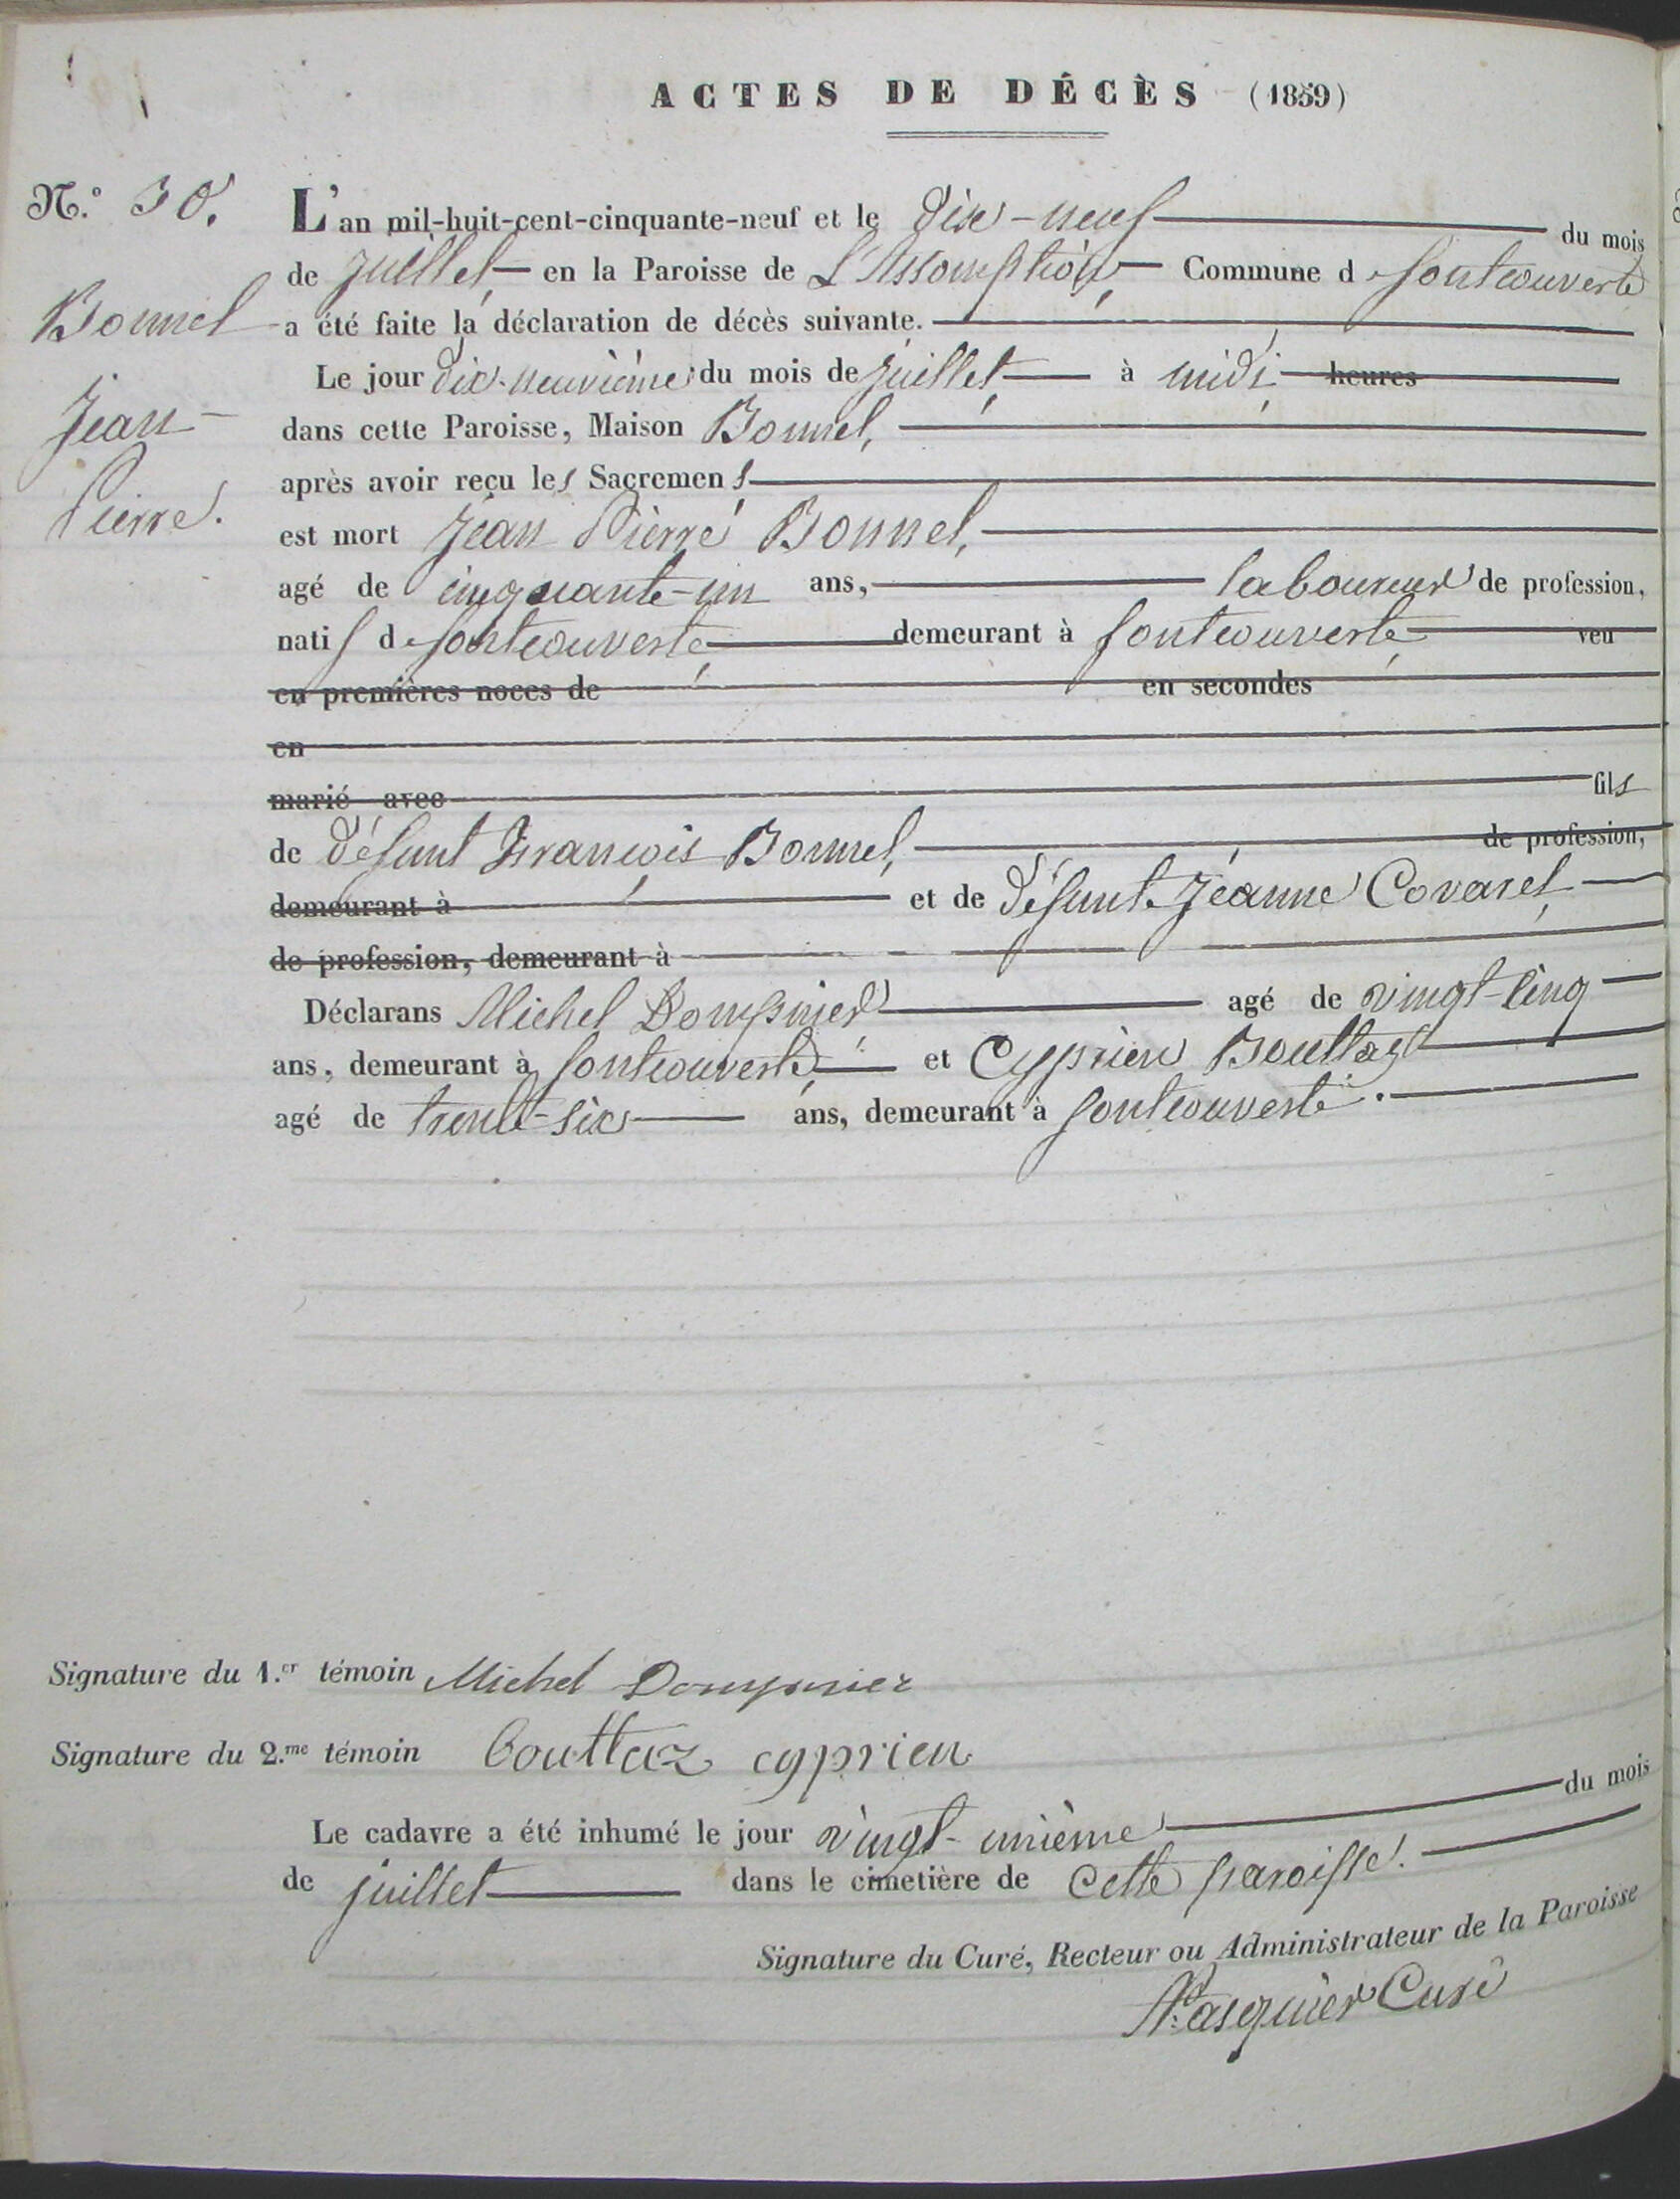 ACTES DE DÉCÈS (1859)
N.º 30.
Bonnel
Jean
Pierre.
L'an mil-huit-cent-cinquante-neuf et le dix-neuf du mois
de juillet, en la Paroisse de L'Assomption, Commune de fontcouverte
a été faite la déclaration de décès suivante.
Le jour dix-neuvième du mois de juillet, à midi heures
dans cette Paroisse, Maison Bonnel,
après avoir reçu les Sacremens
est mort Jean Pierre Bonnel,
agé de cinquante-un ans, laboureur de profession,
natif de fontcouverte, demeurant à fontcouverte, veu
en premières noces de en secondes
en
marié avec fils
de défunt François Bonnel, de profession,
demeurant à et de défunte Jeanne Covarel,
de profession, demeurant à
Déclarans Michel Dompnier agé de vingt-cinq
ans, demeurant à fontcouverte, et Cyprien Bouttaz
agé de trente-six ans, demeurant à fontcouverte.
Signature du 1.er témoin Michel Dompnier
Signature du 2.me témoin Bouttaz cyprien
Le cadavre a été inhumé le jour vingt-unième du mois
de juillet dans le cimetière de cette paroisse.
Signature du Curé, Recteur ou Administrateur de la Paroisse
Pasquier Curé